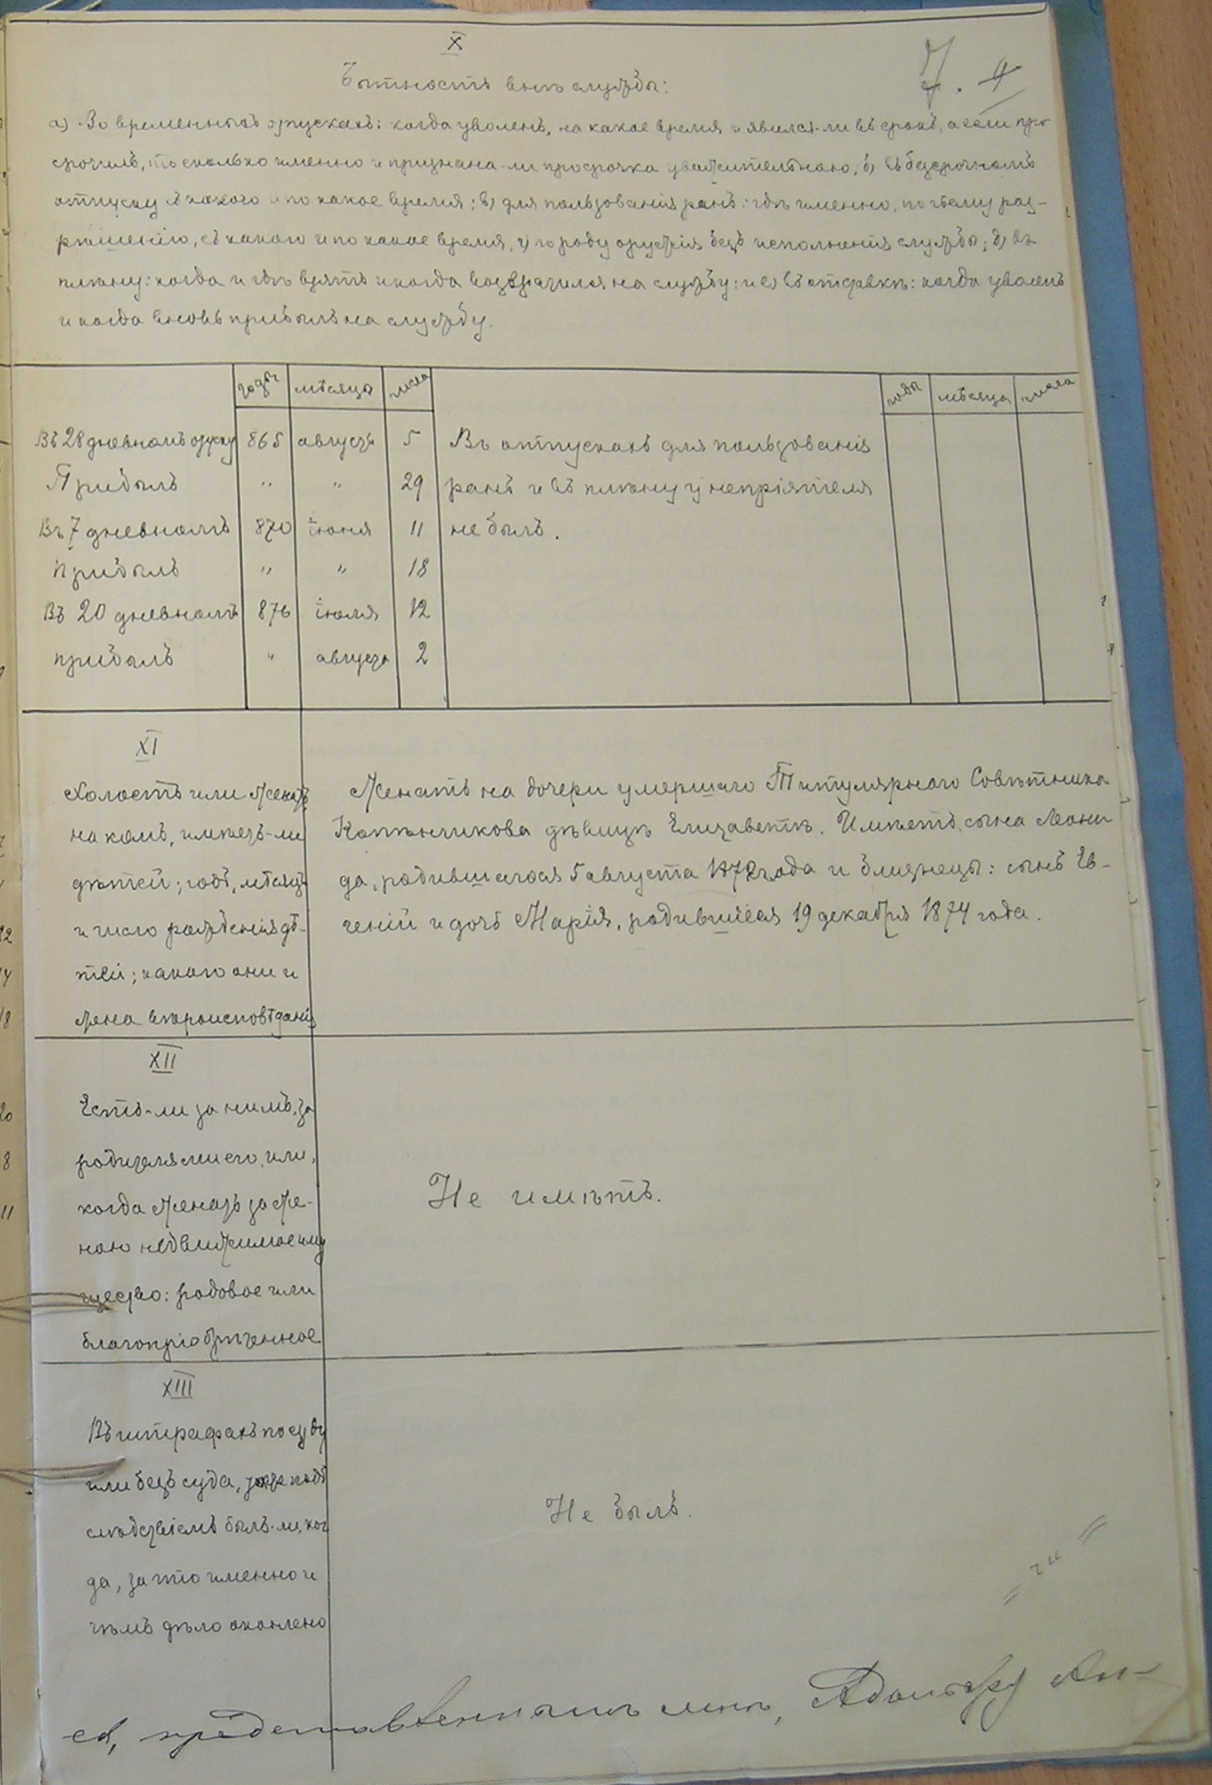 X
Бытность внѣ службы:
7. 4
а) Во временныхъ отпускахъ: когда уволенъ, на какое время и явился-ли въ срокъ, а если про-
срочилъ, то сколько именно и признана-ли просрочка уважительною; б) въ безсрочномъ
отпуску съ какого и по какое время; в) для пользованія ранъ: гдѣ именно, по чьему раз-
рѣшенію, съ какого и по какое время, г) по роду оружія безъ исполненія службы; д) въ
плѣну: когда и гдѣ взятъ и когда возвратился на службу: и е) въ отставкѣ: когда уволенъ
и когда вновь прибылъ на службу.
годы мѣсяцы числа годы мѣсяцы числа
Въ 28 дневномъ отпуску 865 августа 5 Въ отпускахъ для пользованія
Прибылъ " " 29 ранъ и въ плѣну у непріятеля
Въ 7 дневномъ 870 іюня 11 не былъ.
прибылъ " " 18
Въ 20 дневномъ 876 іюля 12
прибылъ " августа 2
XI
Холостъ или женатъ
на комъ, имѣетъ-ли
дѣтей; годъ, мѣсяцъ
и число рожденія дѣ-
тей; какого они и
жена вѣроисповѣданія
Женатъ на дочери умершаго Титулярнаго Совѣтника
дѣвицѣ Елизаветѣ. Имѣетъ сына Леони-
да, родившагося 5 августа 1872 года и близнецы: сынъ Ев-
геній и дочь Марія, родившіеся 19 декабря 1874 года.
XII
Есть-ли за нимъ, за
родителями его, или,
когда женатъ за же-
ною недвижимое иму
щество: родовое или
благопріобрѣтенное
Не имѣетъ.
XIII
Въ штрафахъ по суду
или безъ суда, также подъ
слѣдствіемъ былъ-ли, ког
да, за что именно и
чѣмъ дѣло окончено
Не былъ.
представленнаго мнѣ, Адольфу